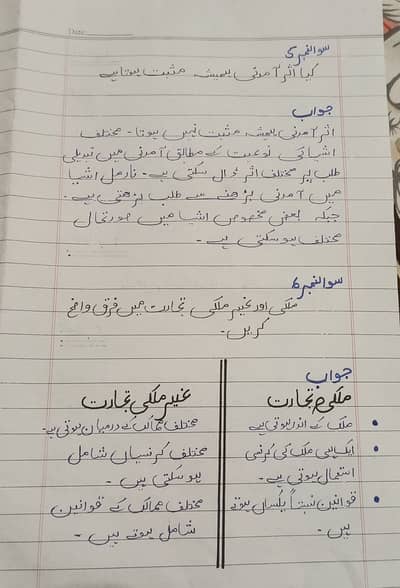 Date:
سوالنمبر 5
کیا اثر آمدنی ہمیشہ مثبت ہوتا ہے
جواب
اثر آمدنی ہمیشہ مثبت نہیں ہوتا۔ مختلف
اشیا کی نوعیت کے مطابق آمدنی میں تبدیلی
طلب پر مختلف اثر ڈال سکتی ہے۔ نارمل اشیا
میں آمدنی بڑھنے سے طلب بڑھتی ہے۔
جبکہ بعض مخصوص اشیا میں صورتحال
مختلف ہو سکتی ہے۔
سوالنمبر 6
ملکی اور غیر ملکی تجارت میں فرق واضح
کریں۔
جواب
ملکی تجارت
ملک کے اندر ہوتی ہے
ایک ہی ملک کی کرنسی
استعمال ہوتی ہے۔
قوانین نسبتاً یکساں ہوتے
ہیں۔
غیر ملکی تجارت
مختلف ممالک کے درمیان ہوتی ہے۔
مختلف کرنسیاں شامل
ہو سکتی ہیں۔
مختلف ممالک کے قوانین
شامل ہوتے ہیں۔